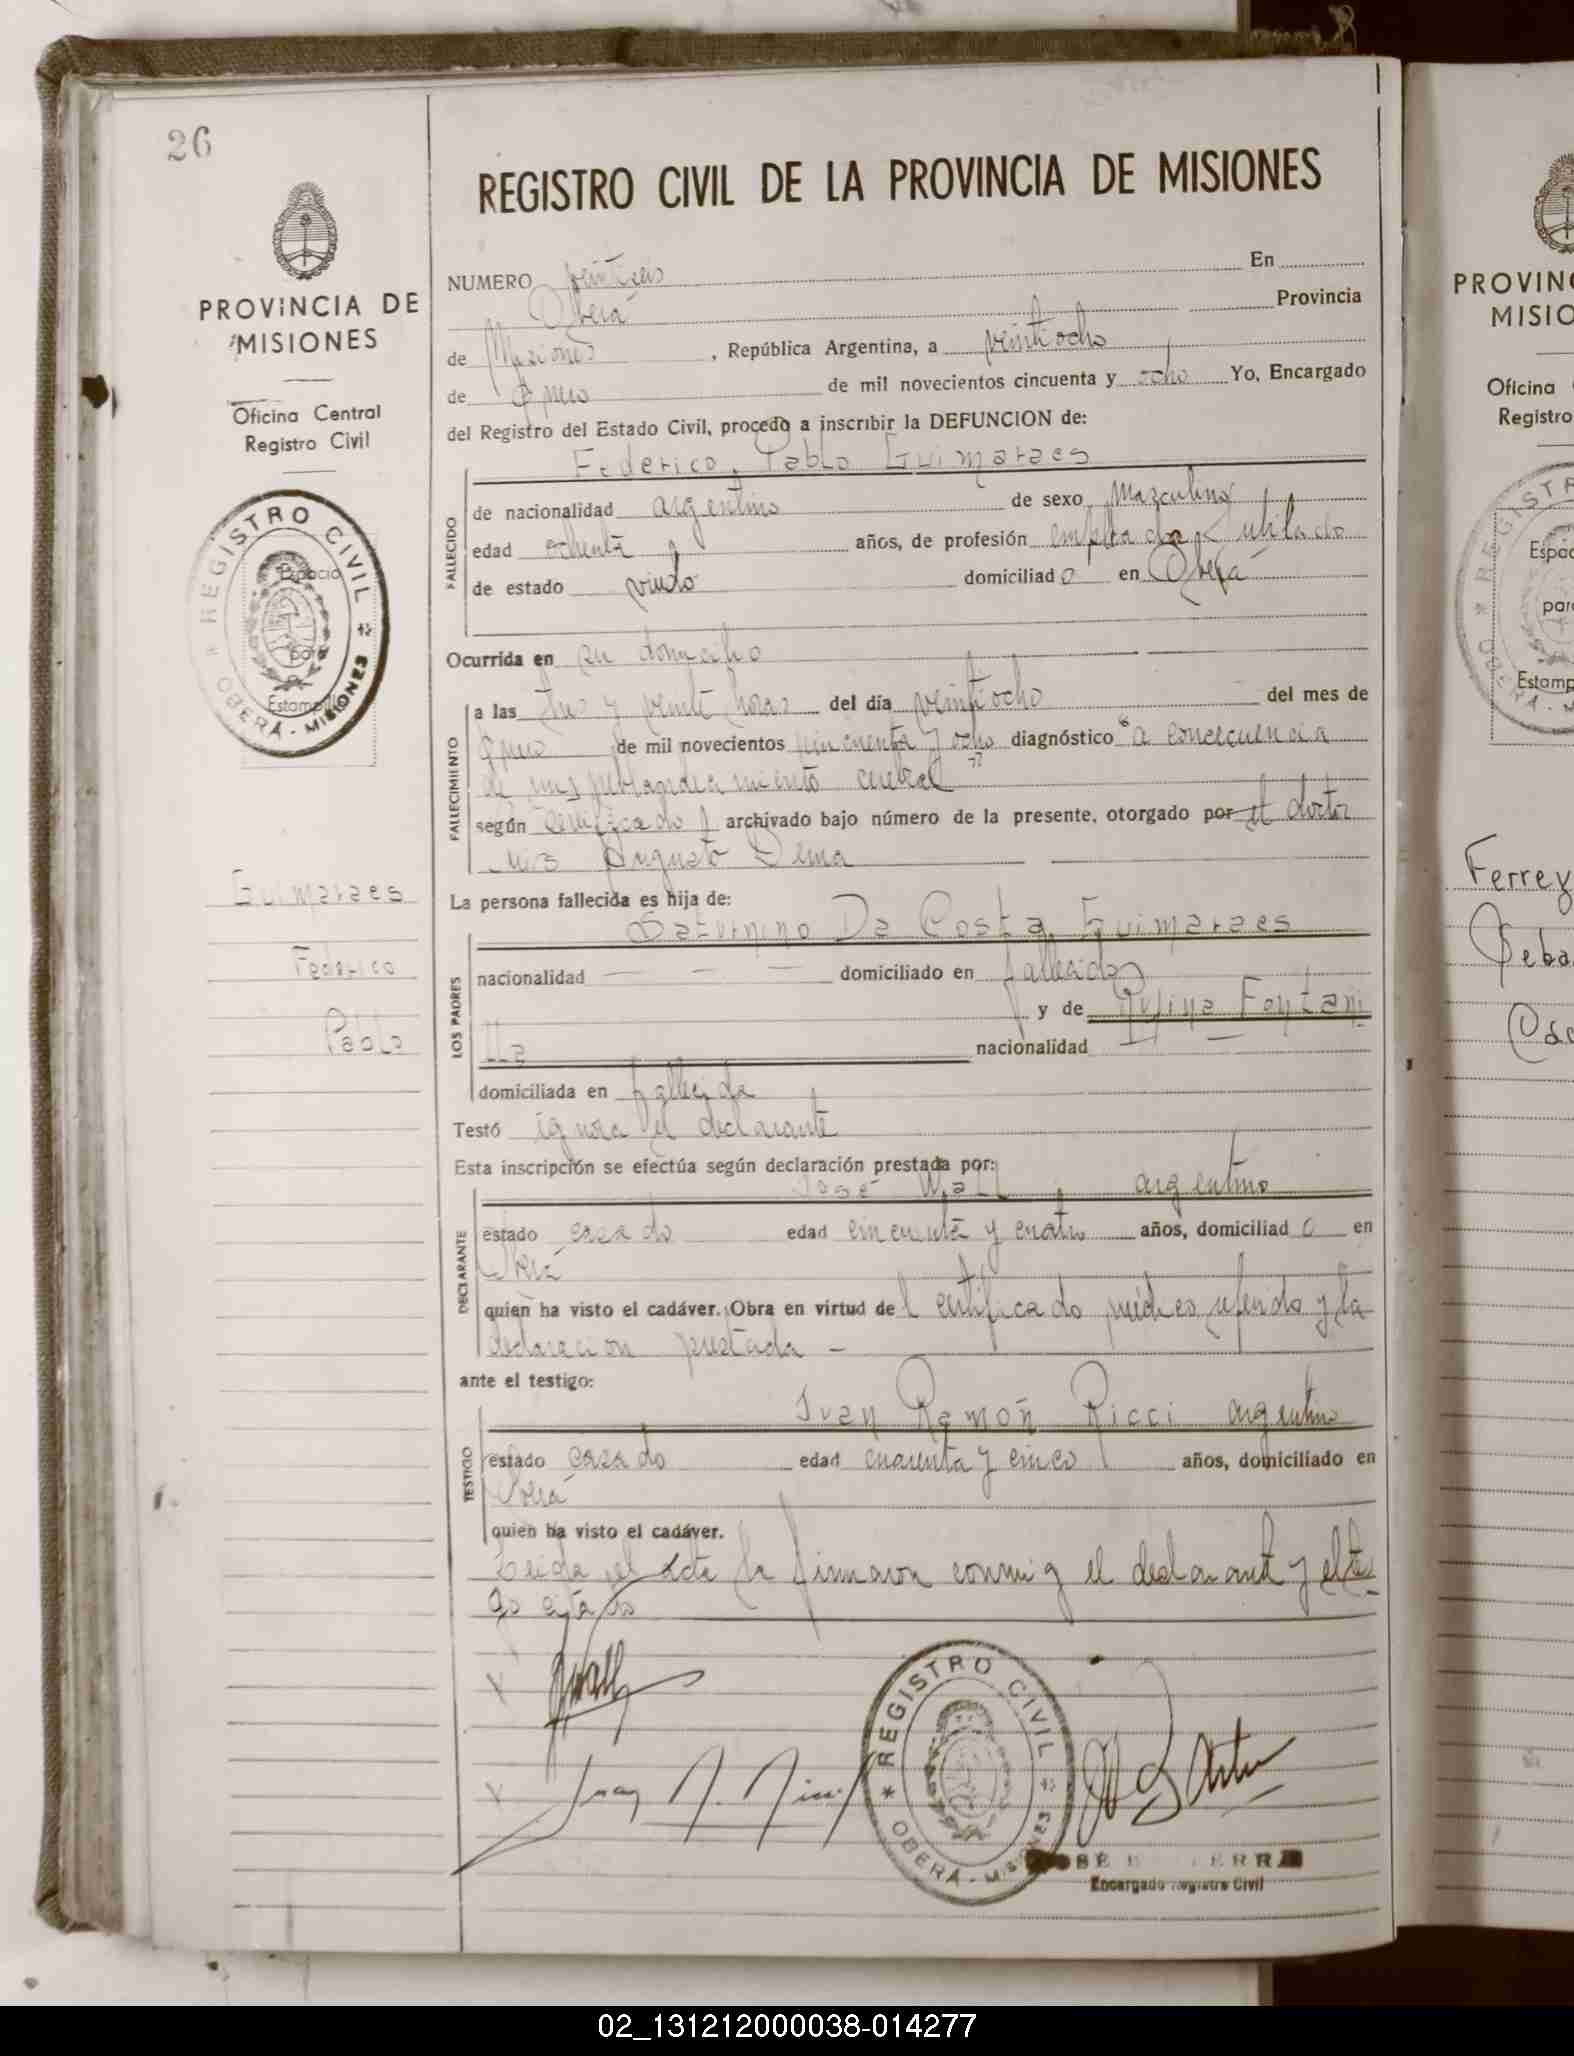 26
PROVINCIA DE
MISIONES
Oficina Central
Registro Civil
REGISTRO CIVIL
Espacio
para
Estampilla
OBERÁ - MISIONES
Guimaraes
Federico
Pablo
REGISTRO CIVIL DE LA PROVINCIA DE MISIONES
NUMERO veintiseis En
Oberá Provincia
de Misiones , República Argentina, a veintiocho
de Enero de mil novecientos cincuenta y ocho Yo, Encargado
del Registro del Estado Civil, procedo a inscribir la DEFUNCION de:
Federico Pablo Guimaraes
FALLECIDO
de nacionalidad argentino de sexo Masculino
edad ochenta años, de profesión empleado Jubilado
de estado viudo domiciliado en Oberá
Ocurrida en su domicilio
FALLECIMIENTO
a las tres y veinte horas del día veintiocho del mes de
Enero de mil novecientos cincuenta y ocho diagnóstico "a concecuencia
de un cerebral"
según certificado archivado bajo número de la presente, otorgado por el doctor
Luis Augusto Dema
La persona fallecida es hija de:
LOS PADRES
Saturnino Da Costa Guimaraes
nacionalidad — — — domiciliado en fallecido
y de Rufina Fontani
lla nacionalidad — —
domiciliada en fallecida
Testó ignora el declarante
Esta inscripción se efectúa según declaración prestada por:
DECLARANTE
José Wall argentino
estado casado edad cincuenta y cuatro años, domiciliado en
Oberá
quien ha visto el cadáver. Obra en virtud del certificado médico referido y la
declaracion prestada –
ante el testigo:
TESTIGO
Juan Ramón Ricci argentino
estado casado edad cuarenta y cinco años, domiciliado en
Oberá
quien ha visto el cadáver.
Leida el acta la firmaron conmigo el declarante y el testi
go citado
JWall
Juan R. Ricci
REGISTRO CIVIL
OBERÁ - MISIONES
Encargado Registro Civil
PROVINC
MISIO
Oficina
Registro
Espac
para
Estamp
Ferrey
Seba
02_131212000038-014277